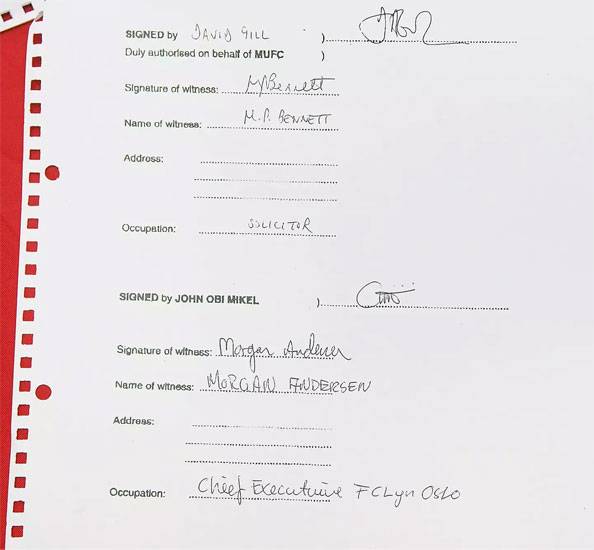 SIGNED by DAVID GILL )
Duly authorised on behalf of MUFC )
Signature of witness: MPBennett
Name of witness: M.P. BENNETT
Address:
Occupation: SOLICITOR
SIGNED by JOHN OBI MIKEL )
Signature of witness: Morgan Andersen
Name of witness: MORGAN ANDERSEN
Address:
Occupation: Chief Executuive FC Lyn Oslo